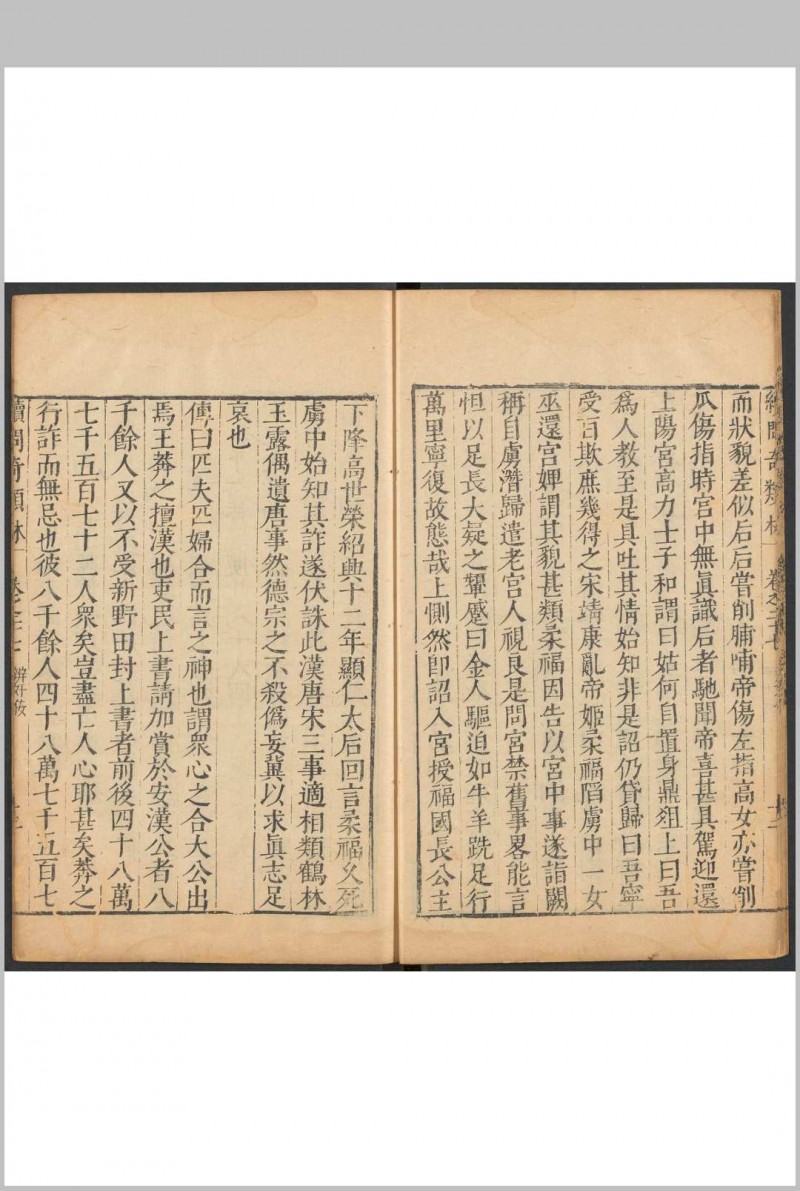 續問奇類林 卷之二十七 十二
而狀貌差似后后嘗削脯哺帝傷左指高女亦嘗削
瓜傷指時宮中無眞識后者馳聞帝喜甚具駕迎還
上陽宮高力士子和謂曰姑何自置身鼎俎上曰吾
爲人教至是具吐其情始知非是詔仍貸歸曰吾寧
受百欺庶幾得之宋靖康亂帝姬柔福陷虜中一女
巫還宮婢謂其貌甚類柔福因告以宮中事遂詣闕
稱自虜潛歸遣老宮人視良是問宮禁舊事畧能言
怛以足長大疑之顰蹙曰金人驅迫如牛羊跣足行
萬里寧復故態哉上惻然卽詔入宮授福國長公主
下降高世榮紹興十二年顯仁太后回言柔福久死
虜中始知其詐遂伏誅此漢唐宋三事適相類鶴林
玉露偶遺唐事然德宗之不殺僞妄冀以求眞志足
哀也
傳曰匹夫匹婦合而言之神也謂衆心之合大公出
焉王莽之擅漢也吏民上書請加賞於安漢公者八
千餘人又以不受新野田封上書者前後四十八萬
七千五百七十二人衆矣豈盡亡人心耶甚矣莽之
行詐而無忌也彼八千餘人四十八萬七千五百七
續問奇類林 卷之二十七 辨奸